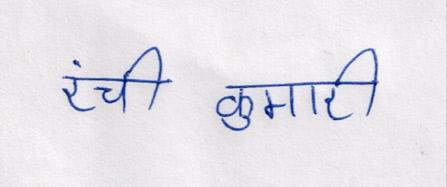 रंची कुमारी